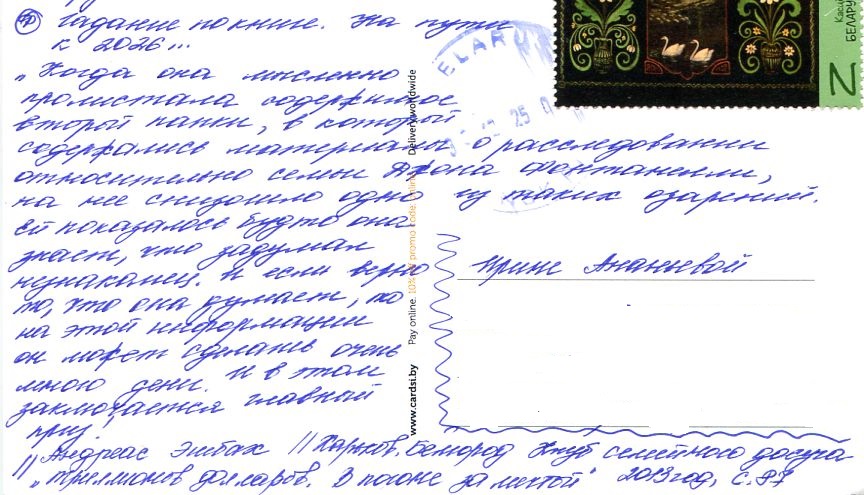 Гадание по книге. На пути
к 2026...
"Когда она мысленно
пролистала содержимое
второй папки, в которой
содержались материалы о расследовании
относительно семьи Джона Фонтанелли,
на неё снизошло одно из таких озарений.
Ей показалось будто она
знает, что задумал
незнакомец. И если верно
то, что она думает, то
на этой информации
он может сделать очень
много денег. И в этом
заключается главный
приз."
//Андреас Эшбах // Харьков. Белгород Клуб семейного досуга
// "Триллионов долларов. В погоне за мечтой" 2013 год, с. 97
Ирине Ананьевой
www.cardsi.by Pay online. 10% promo code: Delivery worldwide
БЕЛАРУ
Z
ELARU
25